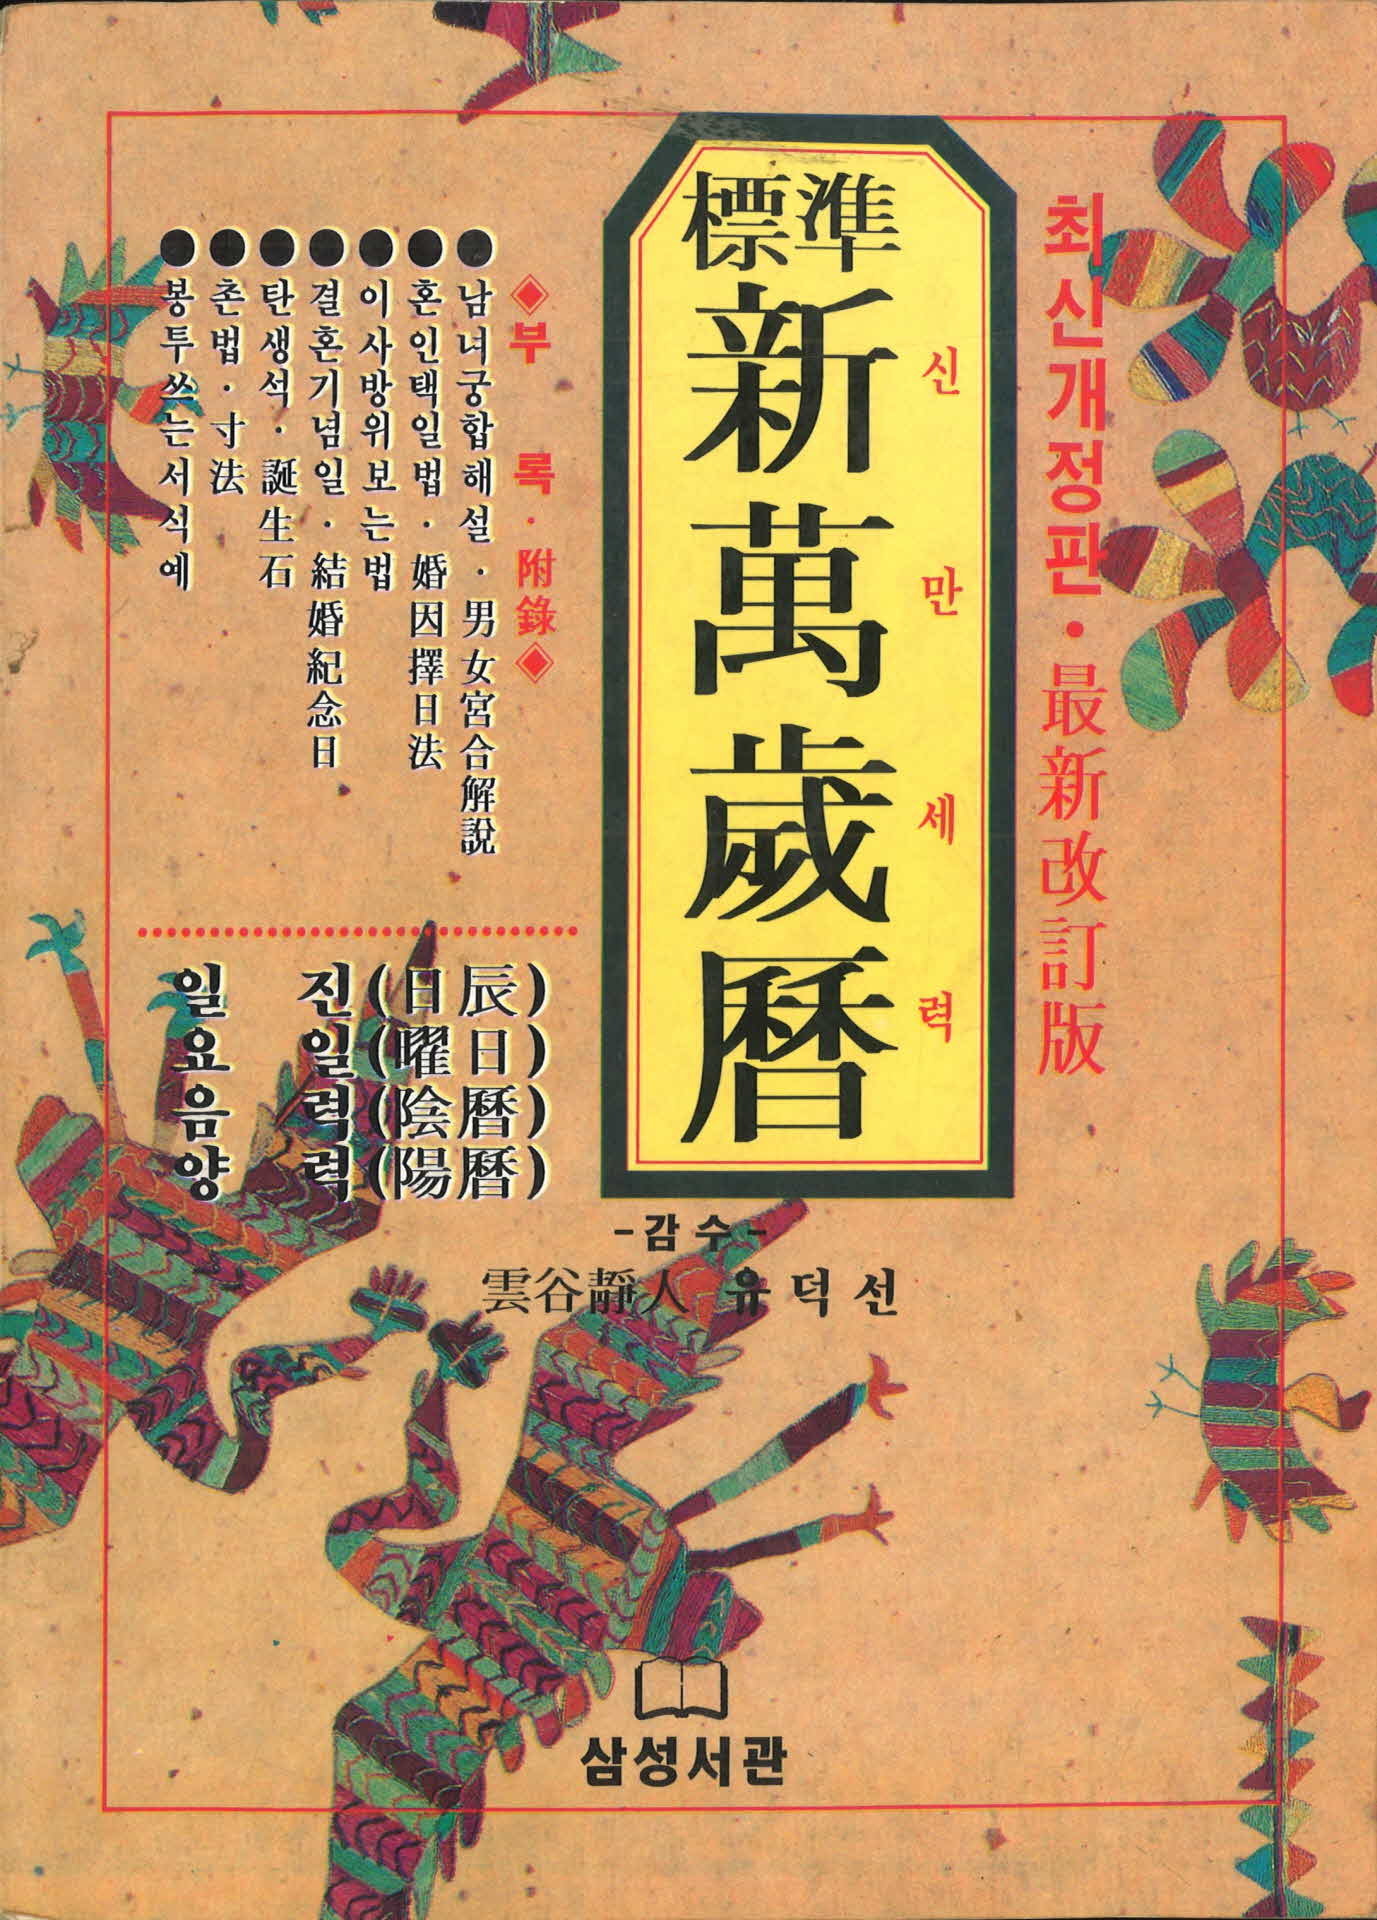 최신개정판·最新改訂版
標準
新萬歲曆
신만세력
◈부 록·附錄◈
●남녀궁합해설·男女宮合解說
●혼인택일법·婚因擇日法
●이사방위보는법
●결혼기념일·結婚紀念日
●탄생석·誕生石
●촌법·寸法
●봉투쓰는서식예
일 진(日辰)
요 일(曜日)
음 력(陰曆)
양 력(陽曆)
-감수-
雲谷靜人 유덕선
삼성서관